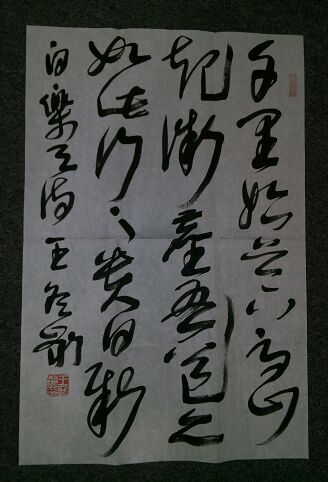 千里始足下高山
起微塵吾道亦
如此行之貴日新
白樂天詩王冬齡